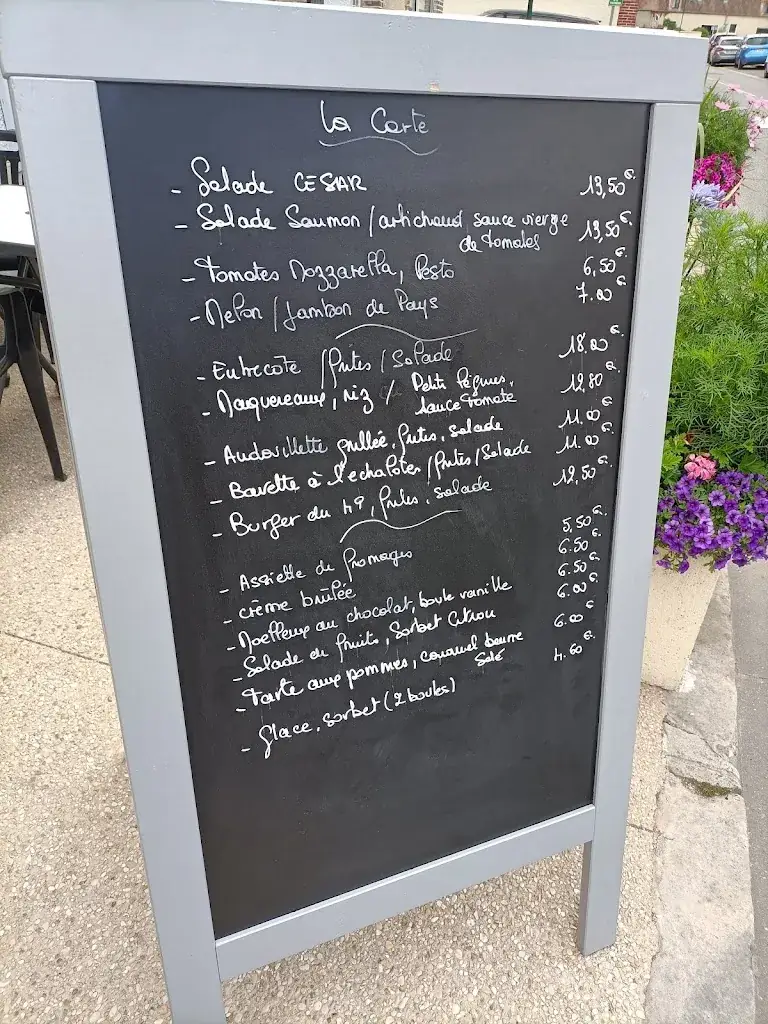 La Carte
- Salade CESAR 13,50€
- Salade Saumon / artichaud sauce vierge de tomates 13,50€
- Tomates Mozzarella, Pesto 6,50€
- Melon / Jambon de Pays 7.00€
- Entrecote / frites / Salade 18.00€
- Maquereaux, riz / Petits légumes, sauce tomate 12,80€
- Andouillette grillée, frites, salade 11.00€
- Bavette à l'echalotes / frites / Salade 11.00€
- Burger du , frites, salade 12,50€
- Assiette de fromages 5,50€
- crème brûlée 6.50€
- Moelleux au chocolat, boule vanille 6.50€
- Salade de fruits, Sorbet Citron 6.00€
- Tarte aux pommes, caramel beurre Salé 6.00€
- Glace, Sorbet (2 boules) 4.60€